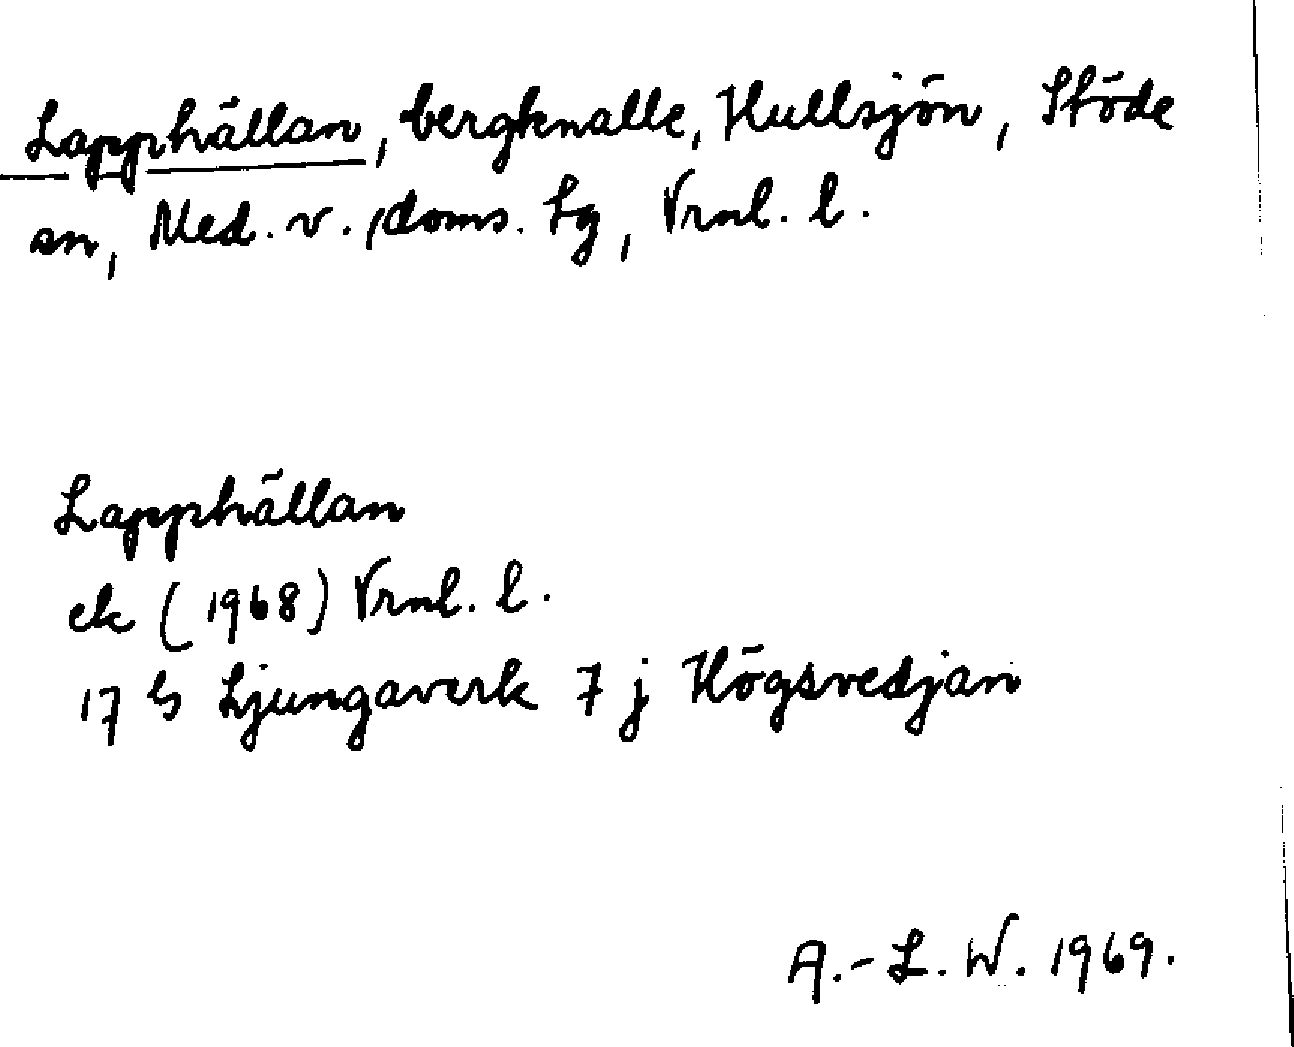 Lapphällan, bergknalle, Hullsjön, Stöde
sn, Med. v. doms. Lg, Vrnl. l.
Lapphällan
ek (1968) Vrnl. l.
17 G Ljungaverk 7 j Högsvedjan
A.-L. W. 1969.